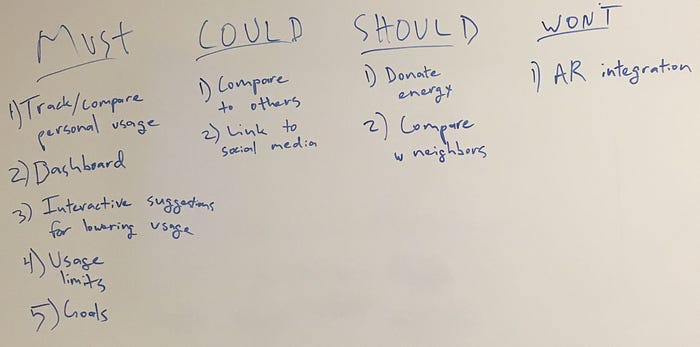 Must
1) Track/compare
personal usage
2) Dashboard
3) Interactive suggestions
for lowering usage
4) Usage
limits
5) Goals
COULD
1) Compare
to others
2) Link to
social media
SHOULD
1) Donate
energy
2) Compare
w neighbors
WONT
1) AR integration